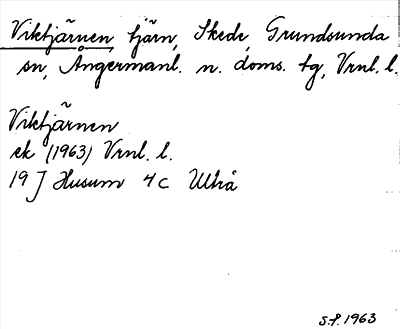 Viktjärnen, tjärn, Skede, Grundsunda
sn, Ångermanl. n. doms. tg, Vrnl. l.
Viktjärnen
ek (1963) Vrnl. l.
19 J Husum 4 c Ultrå
S.F. 1963